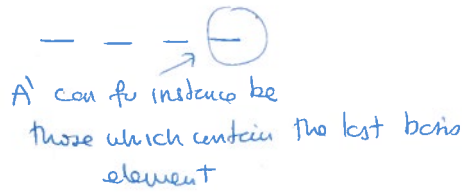 A' can for instance be
those which contain the last basis
element